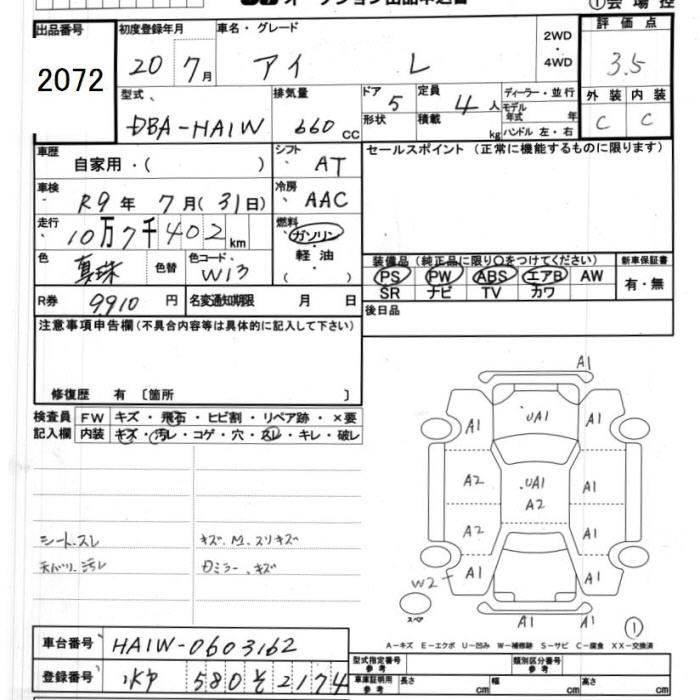 オークション出品申込書
①会場控
出品番号 2072
初度登録年月 20 7月
車名・グレード アイ L
2WD・4WD
評価点 3.5
外装 C 内装 C
型式 DBA-HA1W
排気量 660 CC
ドア 5 形状
定員 4 人 積載 kg
ディーラー・並行
モデル年式 年
ハンドル 左・右
車歴 自家用・( )
シフト AT
セールスポイント (正常に機能するものに限ります)
車検 R9年 7月(31日)
冷房 AAC
走行 10万7千402 km
燃料 ガソリン・軽油・( )
色 真珠 色替
色コード W13
装備品 (純正品に限り〇をつけてください)
PS PW ABS エアB AW
SR ナビ TV カワ
新車保証書 有・無
R券 9910 円
名変通知期限 月 日
後日品
注意事項申告欄 (不具合内容等は具体的に記入して下さい)
修復歴 有 〔箇所 〕
検査員記入欄
FW キズ・飛石・ヒビ割・リペア跡・×要
内装 キズ・汚レ・コゲ・穴・スレ・キレ・破レ
シート.スレ
天バリ.汚レ
キズ.M.スリキズ
Dミラー.キズ
A1
A1 UA1 A1
A2 UA1 A2 A1
A2 A1
W2 A1 A1
A1 A1
スペア
①
A-キズ E-エクボ U-凹み W-補修跡 S-サビ C-腐食 XX-交換済
車台番号 HA1W-0603162
登録番号 580 そ 2174
型式指定番号 参考
類別区分番号 参考
車庫証明用 参考 長さ cm 幅 cm 高さ cm